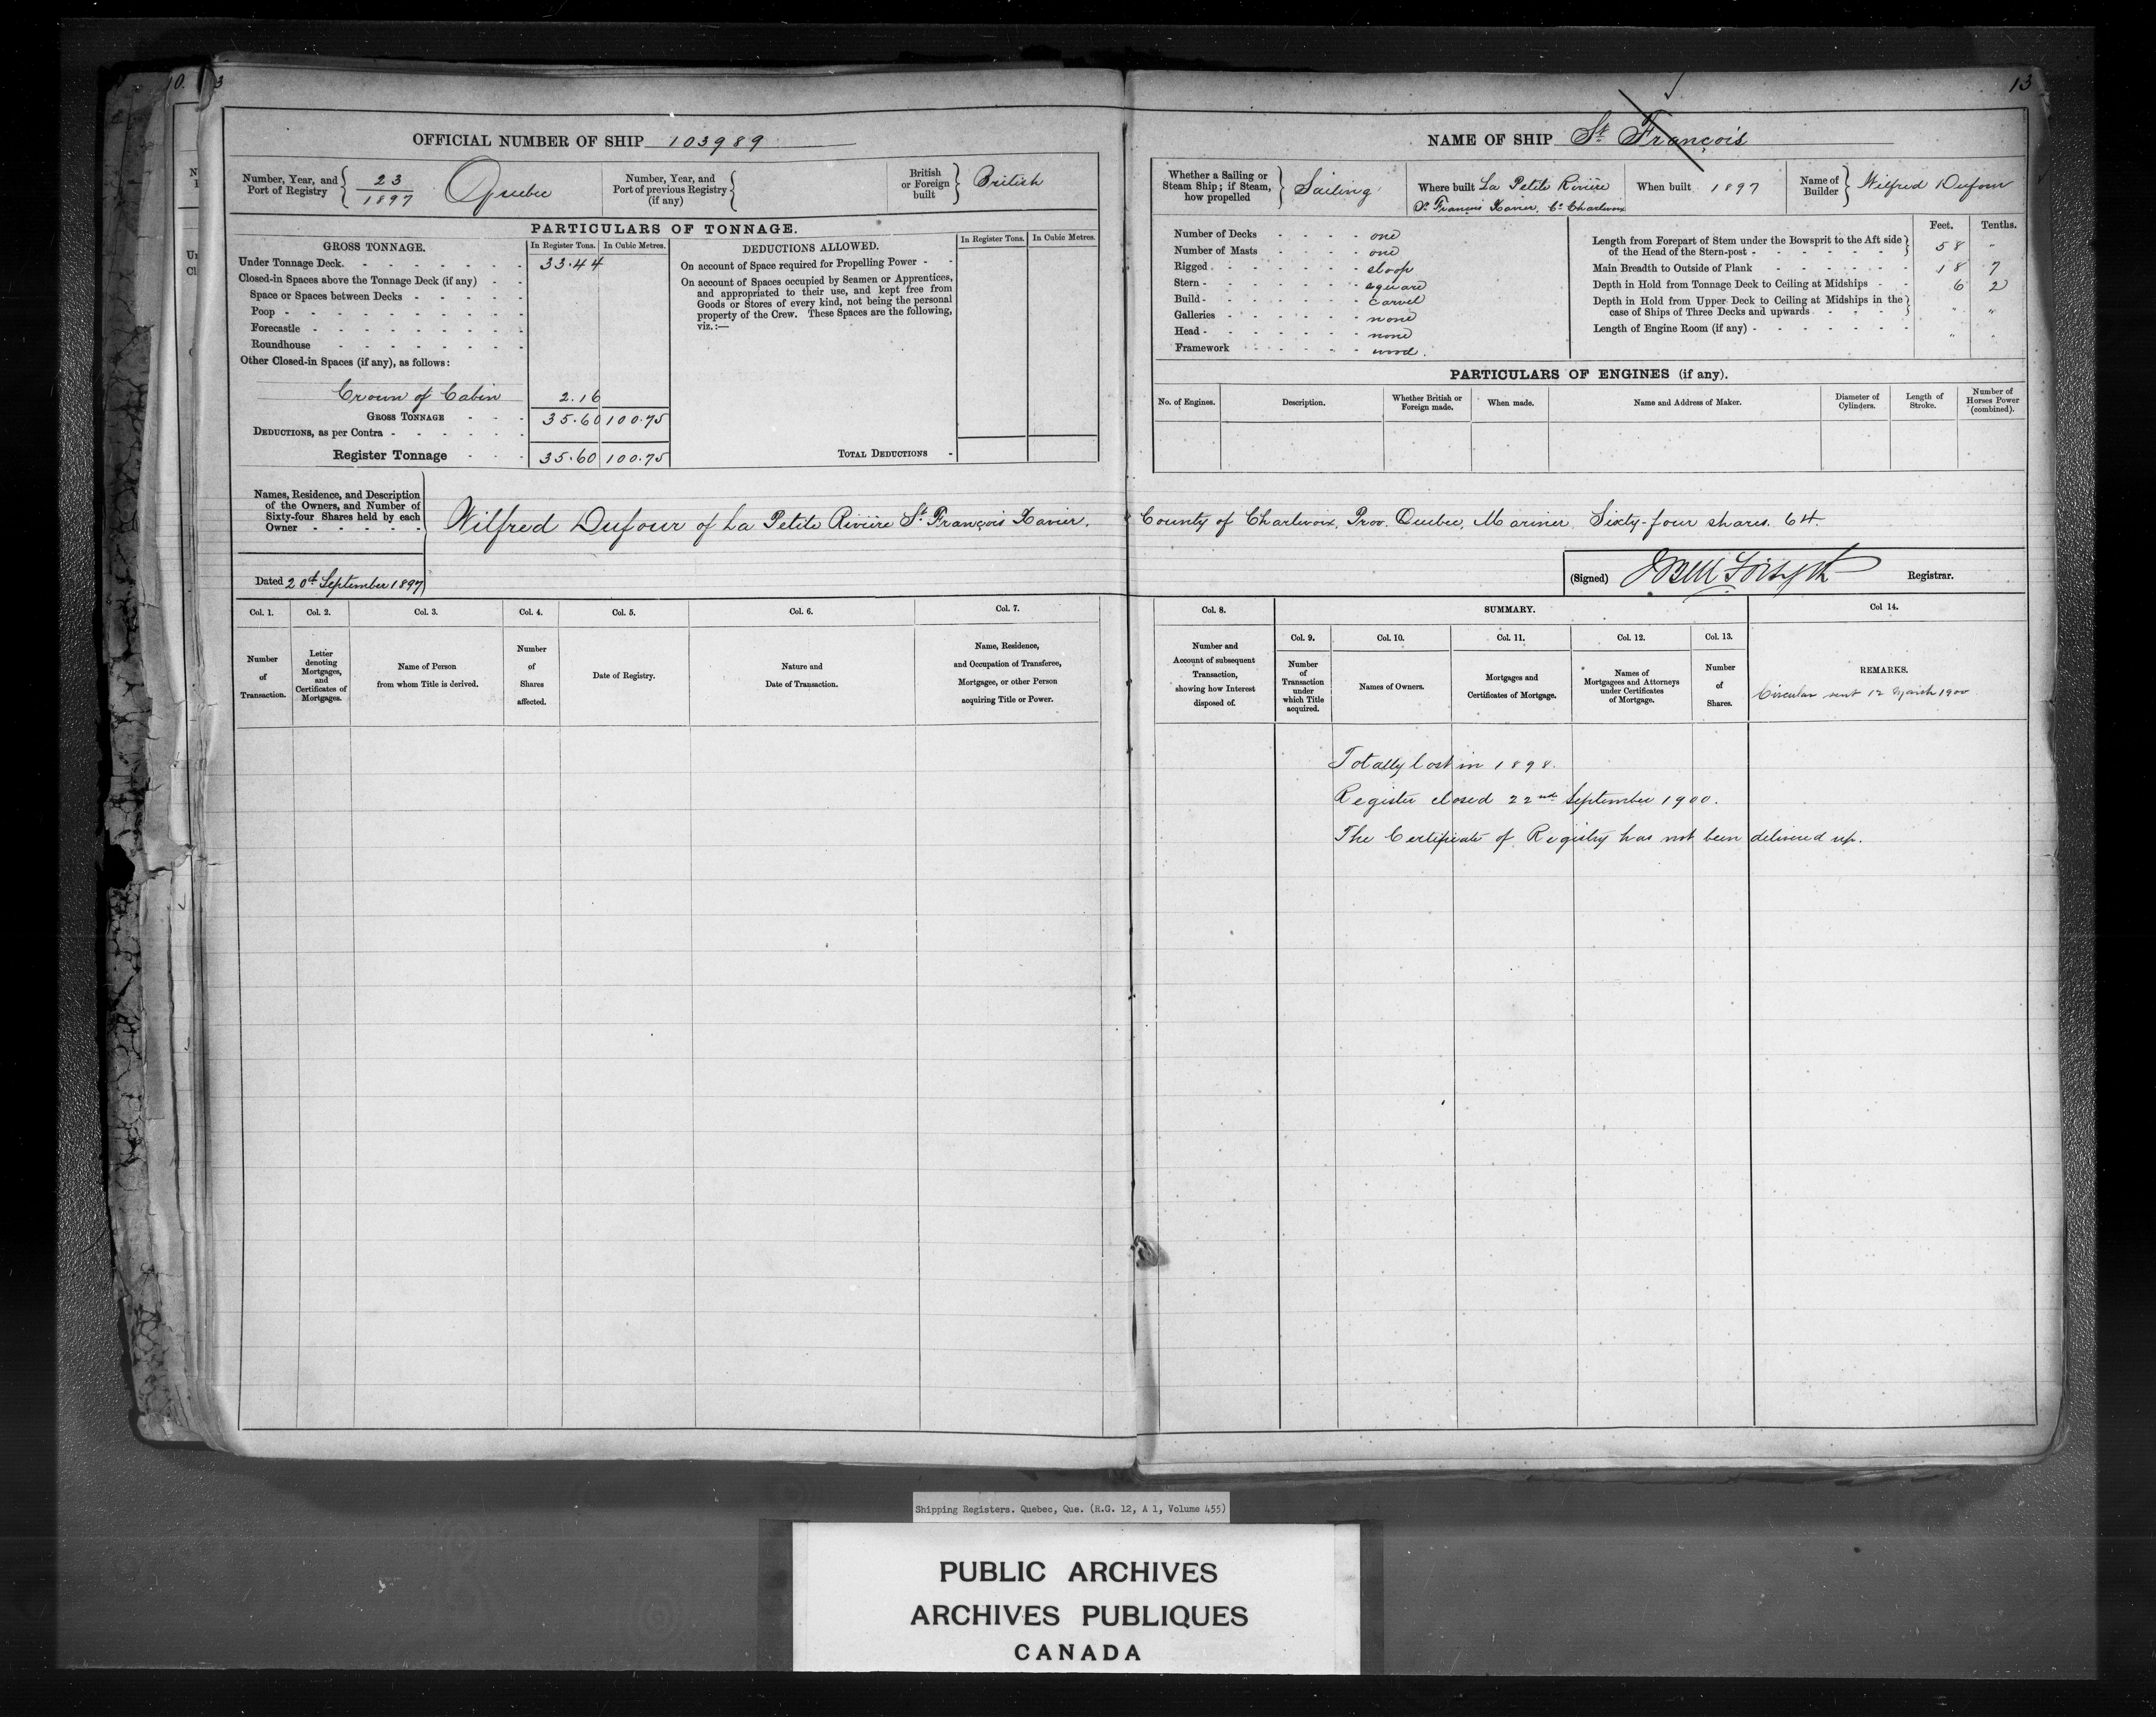 10.
3
OFFICIAL NUMBER OF SHIP 103989
Number, Year, and Port of Registry { 23 / 1897 Quebec
Number, Year, and Port of previous Registry (if any) {
British or Foreign built } British
PARTICULARS OF TONNAGE.
GROSS TONNAGE.
In Register Tons.
In Cubic Metres.
Under Tonnage Deck 33.44
Closed-in Spaces above the Tonnage Deck (if any)
Space or Spaces between Decks
Poop
Forecastle
Roundhouse
Other Closed-in Spaces (if any), as follows:
Crown of Cabin 2.16
GROSS TONNAGE 35.60 100.75
DEDUCTIONS, as per Contra
Register Tonnage 35.60 100.75
DEDUCTIONS ALLOWED.
In Register Tons.
In Cubic Metres.
On account of Space required for Propelling Power
On account of Spaces occupied by Seamen or Apprentices,
and appropriated to their use, and kept free from
Goods or Stores of every kind, not being the personal
property of the Crew. These Spaces are the following,
viz.:—
TOTAL DEDUCTIONS
Names, Residence, and Description
of the Owners, and Number of
Sixty-four Shares held by each
Owner
Wilfred Dufour of La Petite Rivière St. François Xavier,
Dated 20th September 1897
Col. 1.
Number of Transaction.
Col. 2.
Letter denoting Mortgages, and Certificates of Mortgages.
Col. 3.
Name of Person from whom Title is derived.
Col. 4.
Number of Shares affected.
Col. 5.
Date of Registry.
Col. 6.
Nature and Date of Transaction.
Col. 7.
Name, Residence, and Occupation of Transferee, Mortgagee, or other Person acquiring Title or Power.
13
NAME OF SHIP St. François
Whether a Sailing or Steam Ship; if Steam, how propelled } Sailing
Where built La Petite Rivière
St. François Xavier, Co. Charlevoix
When built 1897
Name of Builder } Wilfred Dufour
Number of Decks one
Number of Masts one
Rigged sloop
Stern square
Build carvel
Galleries none
Head none
Framework wood.
Feet.
Tenths.
Length from Forepart of Stem under the Bowsprit to the Aft side
of the Head of the Stern-post } 58 "
Main Breadth to Outside of Plank 18 7
Depth in Hold from Tonnage Deck to Ceiling at Midships 6 2
Depth in Hold from Upper Deck to Ceiling at Midships in the
case of Ships of Three Decks and upwards } " "
Length of Engine Room (if any) " "
PARTICULARS OF ENGINES (if any).
No. of Engines.
Description.
Whether British or Foreign made.
When made.
Name and Address of Maker.
Diameter of Cylinders.
Length of Stroke.
Number of Horses Power (combined).
County of Charlevoix, Prov. Quebec, Mariner, Sixty-four shares. 64.
(Signed) Forsyth Registrar.
Col. 8.
Number and Account of subsequent Transaction, showing how Interest disposed of.
SUMMARY.
Col. 9.
Number of Transaction under which Title acquired.
Col. 10.
Names of Owners.
Col. 11.
Mortgages and Certificates of Mortgage.
Col. 12.
Names of Mortgagees and Attorneys under Certificates of Mortgage.
Col. 13.
Number of Shares.
Col 14.
REMARKS.
Circular sent 12 March 1900
Totally lost in 1898.
Register closed 22nd September 1900.
The Certificate of Registry has not been delivered up.
Shipping Registers. Quebec, Que. (R.G. 12, A 1, Volume 455)
PUBLIC ARCHIVES
ARCHIVES PUBLIQUES
CANADA